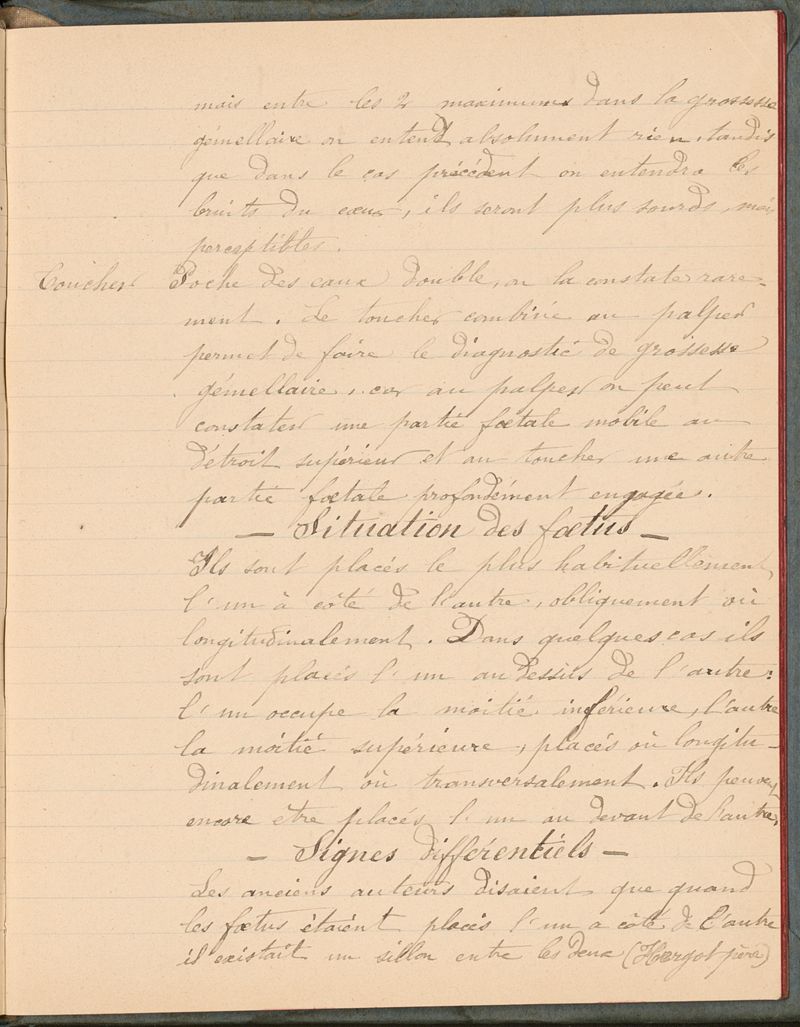 mais entre les 2 maximums dans la grossesse
gémellaire on entend absolument rien, tandis
que dans le cas précédent on entendra les
bruits du cœur, ils seront plus sourds, mais
perceptibles.
Toucher Poche des eaux double, on la constate rare-
ment. Le toucher combiné au palper
permet de faire le diagnostic de grossesse
gémellaire, car au palper on peut
constater une partie fœtale mobile au
détroit supérieur et au toucher une autre
partie fœtale profondément engagée.
— Situation des fœtus —
Ils sont placés le plus habituellement
l'un à côté de l'autre, obliquement où
longitudinalement. Dans quelques cas ils
sont placés l'un au dessus de l'autre:
l'un occupe la moitié inférieure, l'autre
la moitié supérieure, placés où longitu-
dinalement où transversalement. Ils peuvent
encore etre placés l'un au devant de l'autre.
— Signes différentiels —
Les anciens auteurs disaient que quand
les fœtus étaient placés l'un a côté de l'autre
il existait un sillon entre les deux (Hergot père)